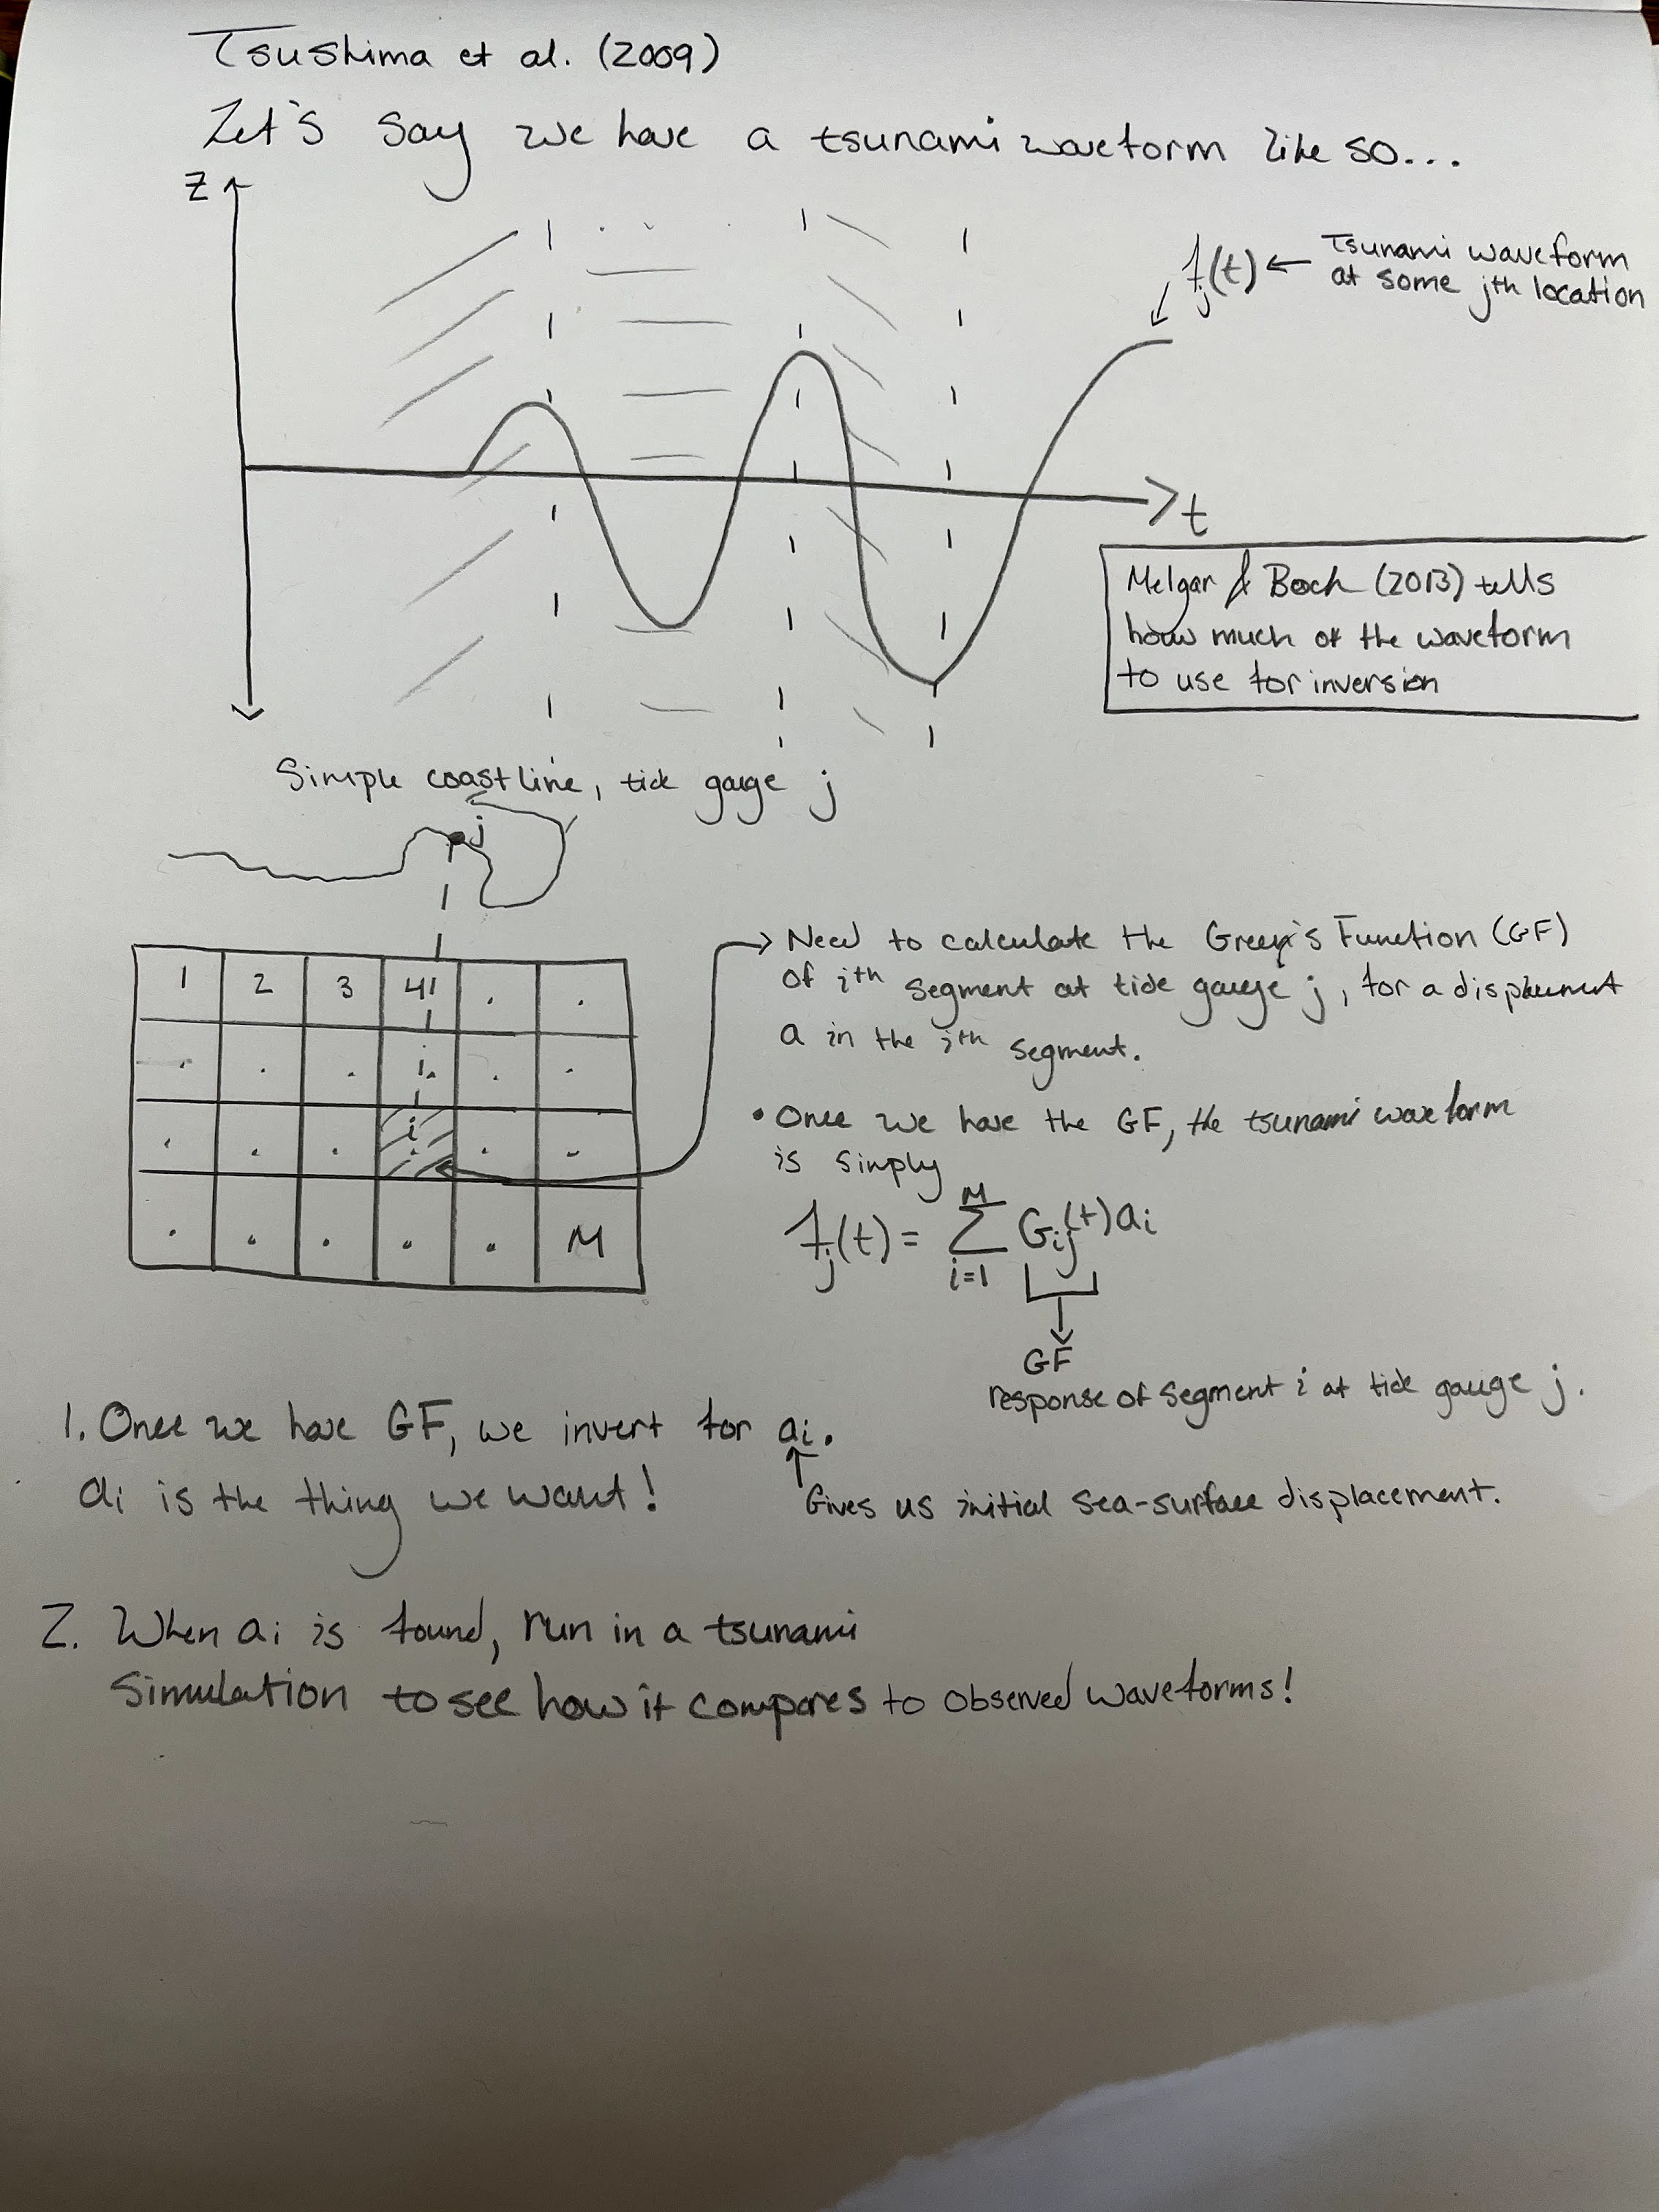 Tsushima et al. (2009)
Let's say we have a tsunami waveform like so...
z
fj(t) ← Tsunami waveform
at some jth location
t
Melgar & Bock (2013) tells
how much of the waveform
to use for inversion
Simple coastline, tide gauge j
j
1 2 3 4 . .
. . . . . .
. . . i . .
. . . . . M
→ Need to calculate the Green's Function (GF)
of ith segment at tide gauge j, for a displacement
a in the ith segment.
• Once we have the GF, the tsunami waveform
is simply
fj(t) = Σ Gij(t) ai
M
i=1
GF
response of segment i at tide gauge j.
1. Once we have GF, we invert for ai.
ai is the thing we want!
Gives us initial sea-surface displacement.
2. When ai is found, run in a tsunami
simulation to see how it compares to observed waveforms!